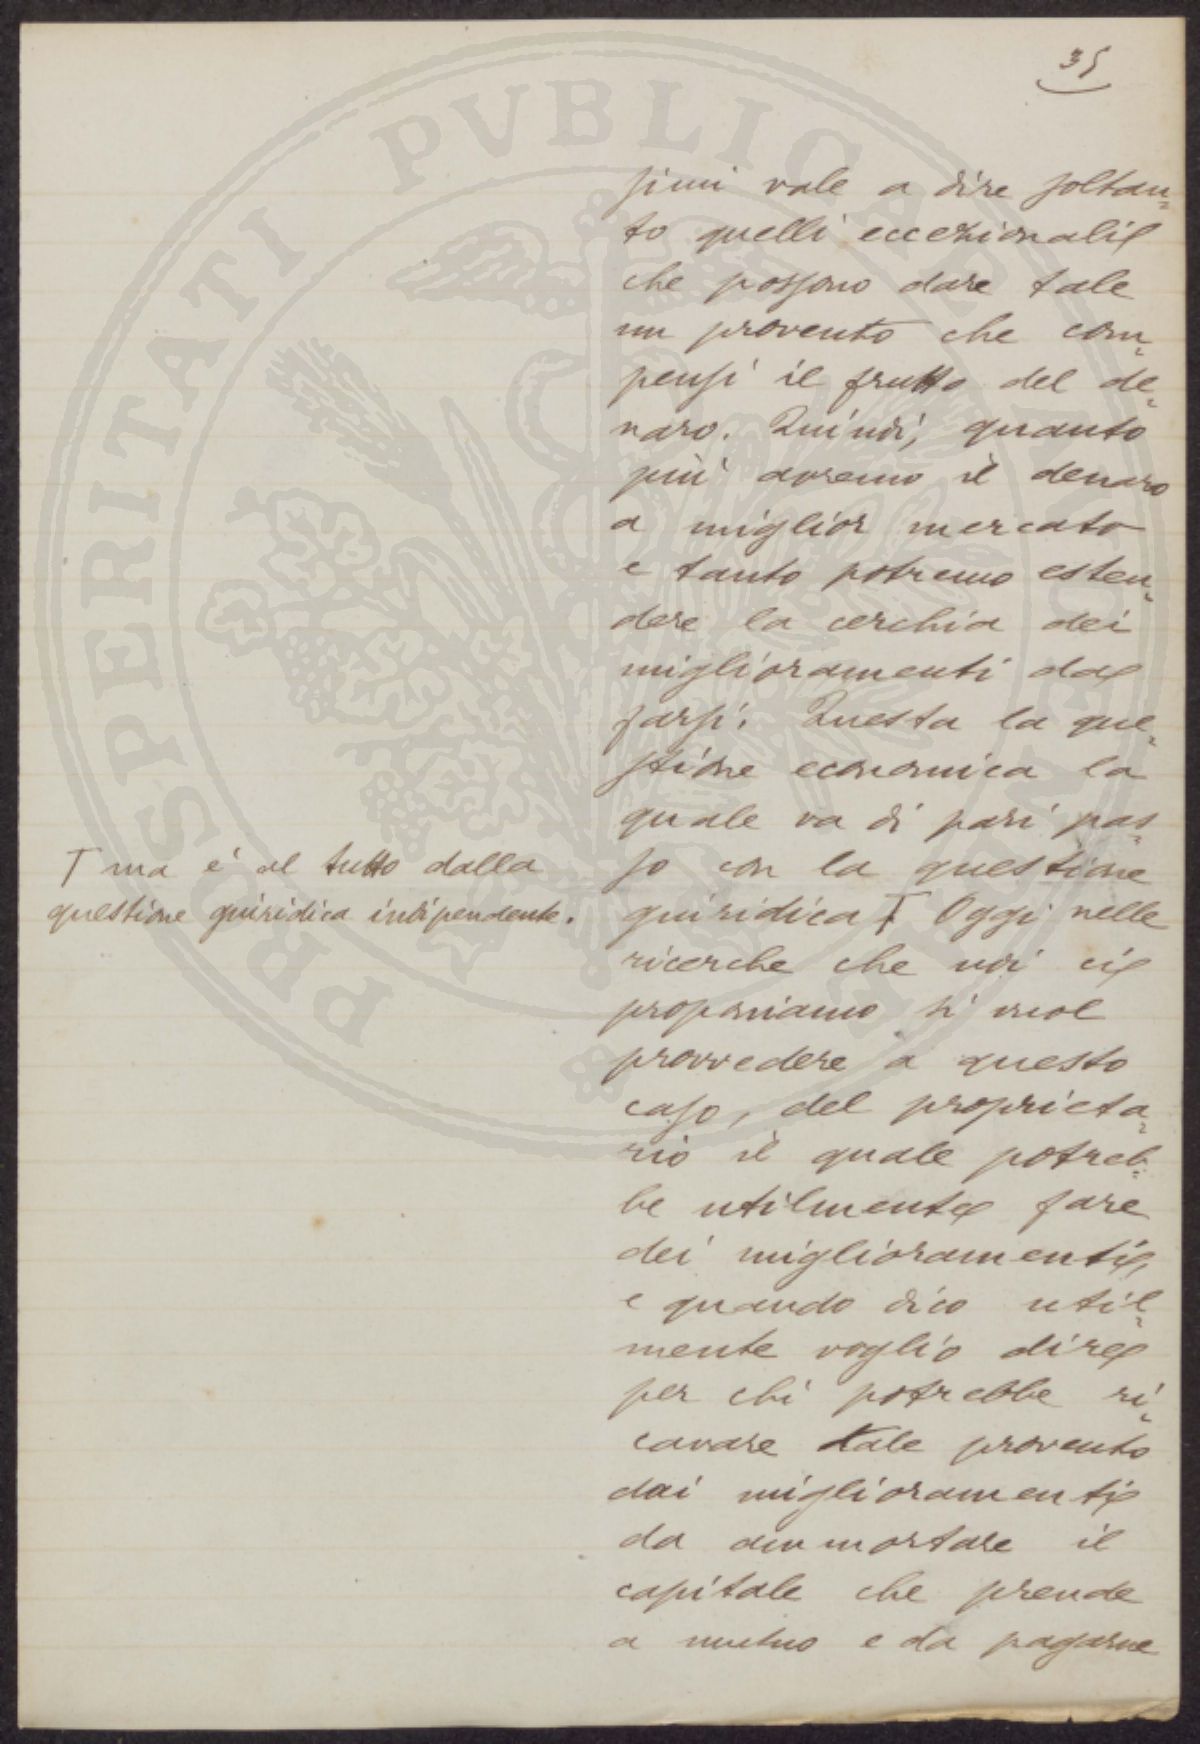 35
simi vale a dire soltan=
to quelli eccezionali
che possono dare tale
un provento che com=
pensi il frutto del de=
naro. Quindi, quanto
più avremo il denaro
a miglior mercato
e tanto potremo esten=
dere la cerchia dei
miglioramenti da
farsi. Questa la que=
stione economica la
quale va di pari pas=
so con la questione
giuridica T Oggi nelle
ricerche che noi ci
proponiamo si vuol
provvedere a questo
caso, del proprieta=
rio il quale potreb=
be utilmente fare
dei miglioramenti,
e quando dico util=
mente voglio dire
per chi potrebbe ri=
cavare tale provento
dai miglioramenti
da ammortare il
capitale che prende
a mutuo e da pagarne
T ma è al tutto dalla
questione giuridica indipendente.
PROSPERITATI PVBLICAE